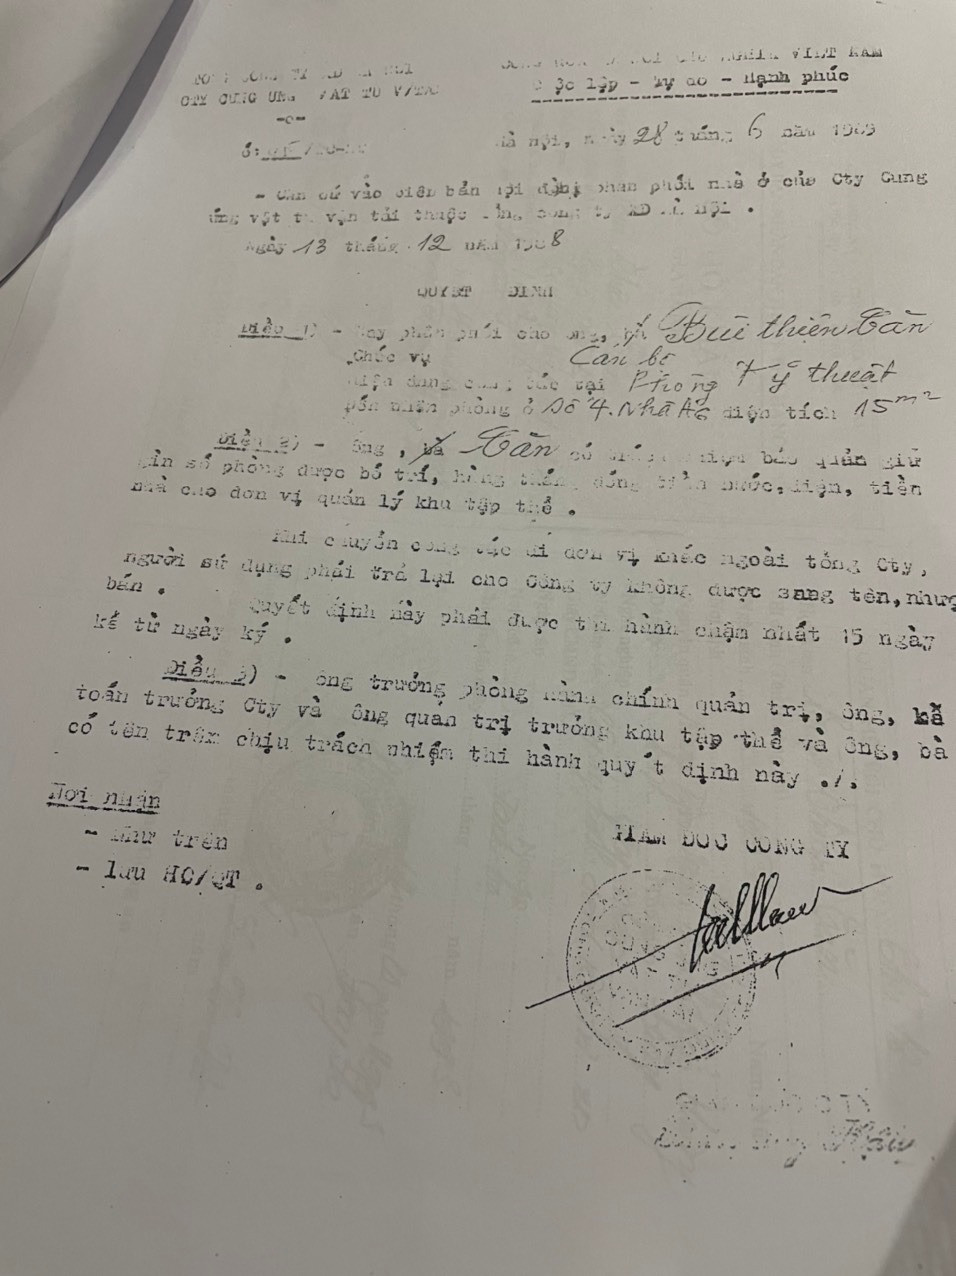 VIỆT NAM
CTY CUNG ỨNG VẬT TƯ V/TẢI
lập - Tự do - Hạnh phúc
-o-
Hà nội, ngày 28 tháng 6 năm 1989
- Căn cứ vào biên bản hội đồng phân phối nhà ở của Cty Cung
ứng vật tư vận tải thuộc tổng công ty XD Hà Nội .
Ngày 13 tháng 12 năm 1988
QUYẾT ĐỊNH
Điều 1) - Nay phân phối cho ông, bà Bùi thiện Cần
Chức vụ Cán bộ
Hiện đang công tác tại Phòng Kỹ thuật
Đến nhận phòng ở Số 4. Nhà A6 diện tích 15m2
Điều 2) - Ông , bà Cần có trách nhiệm bảo quản giữ
gìn số phòng được bố trí, hàng tháng đóng tiền nước, điện, tiền
nhà cho đơn vị quản lý khu tập thể .
Khi chuyển công tác đi đơn vị khác ngoài tổng Cty,
người sử dụng phải trả lại cho Công ty không được sang tên, nhượ
bán .
Quyết định này phải được thi hành chậm nhất 15 ngày
kể từ ngày ký .
Điều 3) - ông trưởng phòng hành chính quản trị, ông, kế
toán trưởng Cty và ông quản trị trưởng khu tập thể và ông, bà
có tên trên chịu trách nhiệm thi hành quyết định này ./.
Nơi nhận
- Như trên
- lưu HC/QT .
GIÁM ĐỐC CÔNG TY
GIÁM ĐỐC CTY